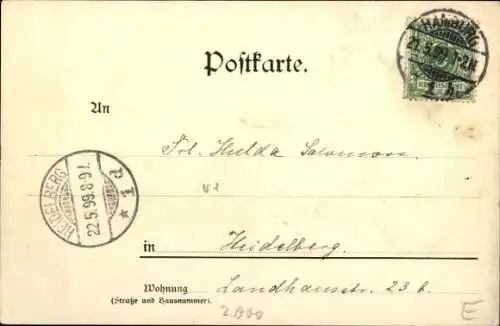 HAMBURG
21.5.99.1-2N
1 h.
Postkarte.
An
Frl. Hulda Salomon
HEIDELBERG
22.5.99.8-9V.
* 1 d
in Heidelberg.
Wohnung Landhausstr. 23 b.
(Straße und Hausnummer)
2000
E